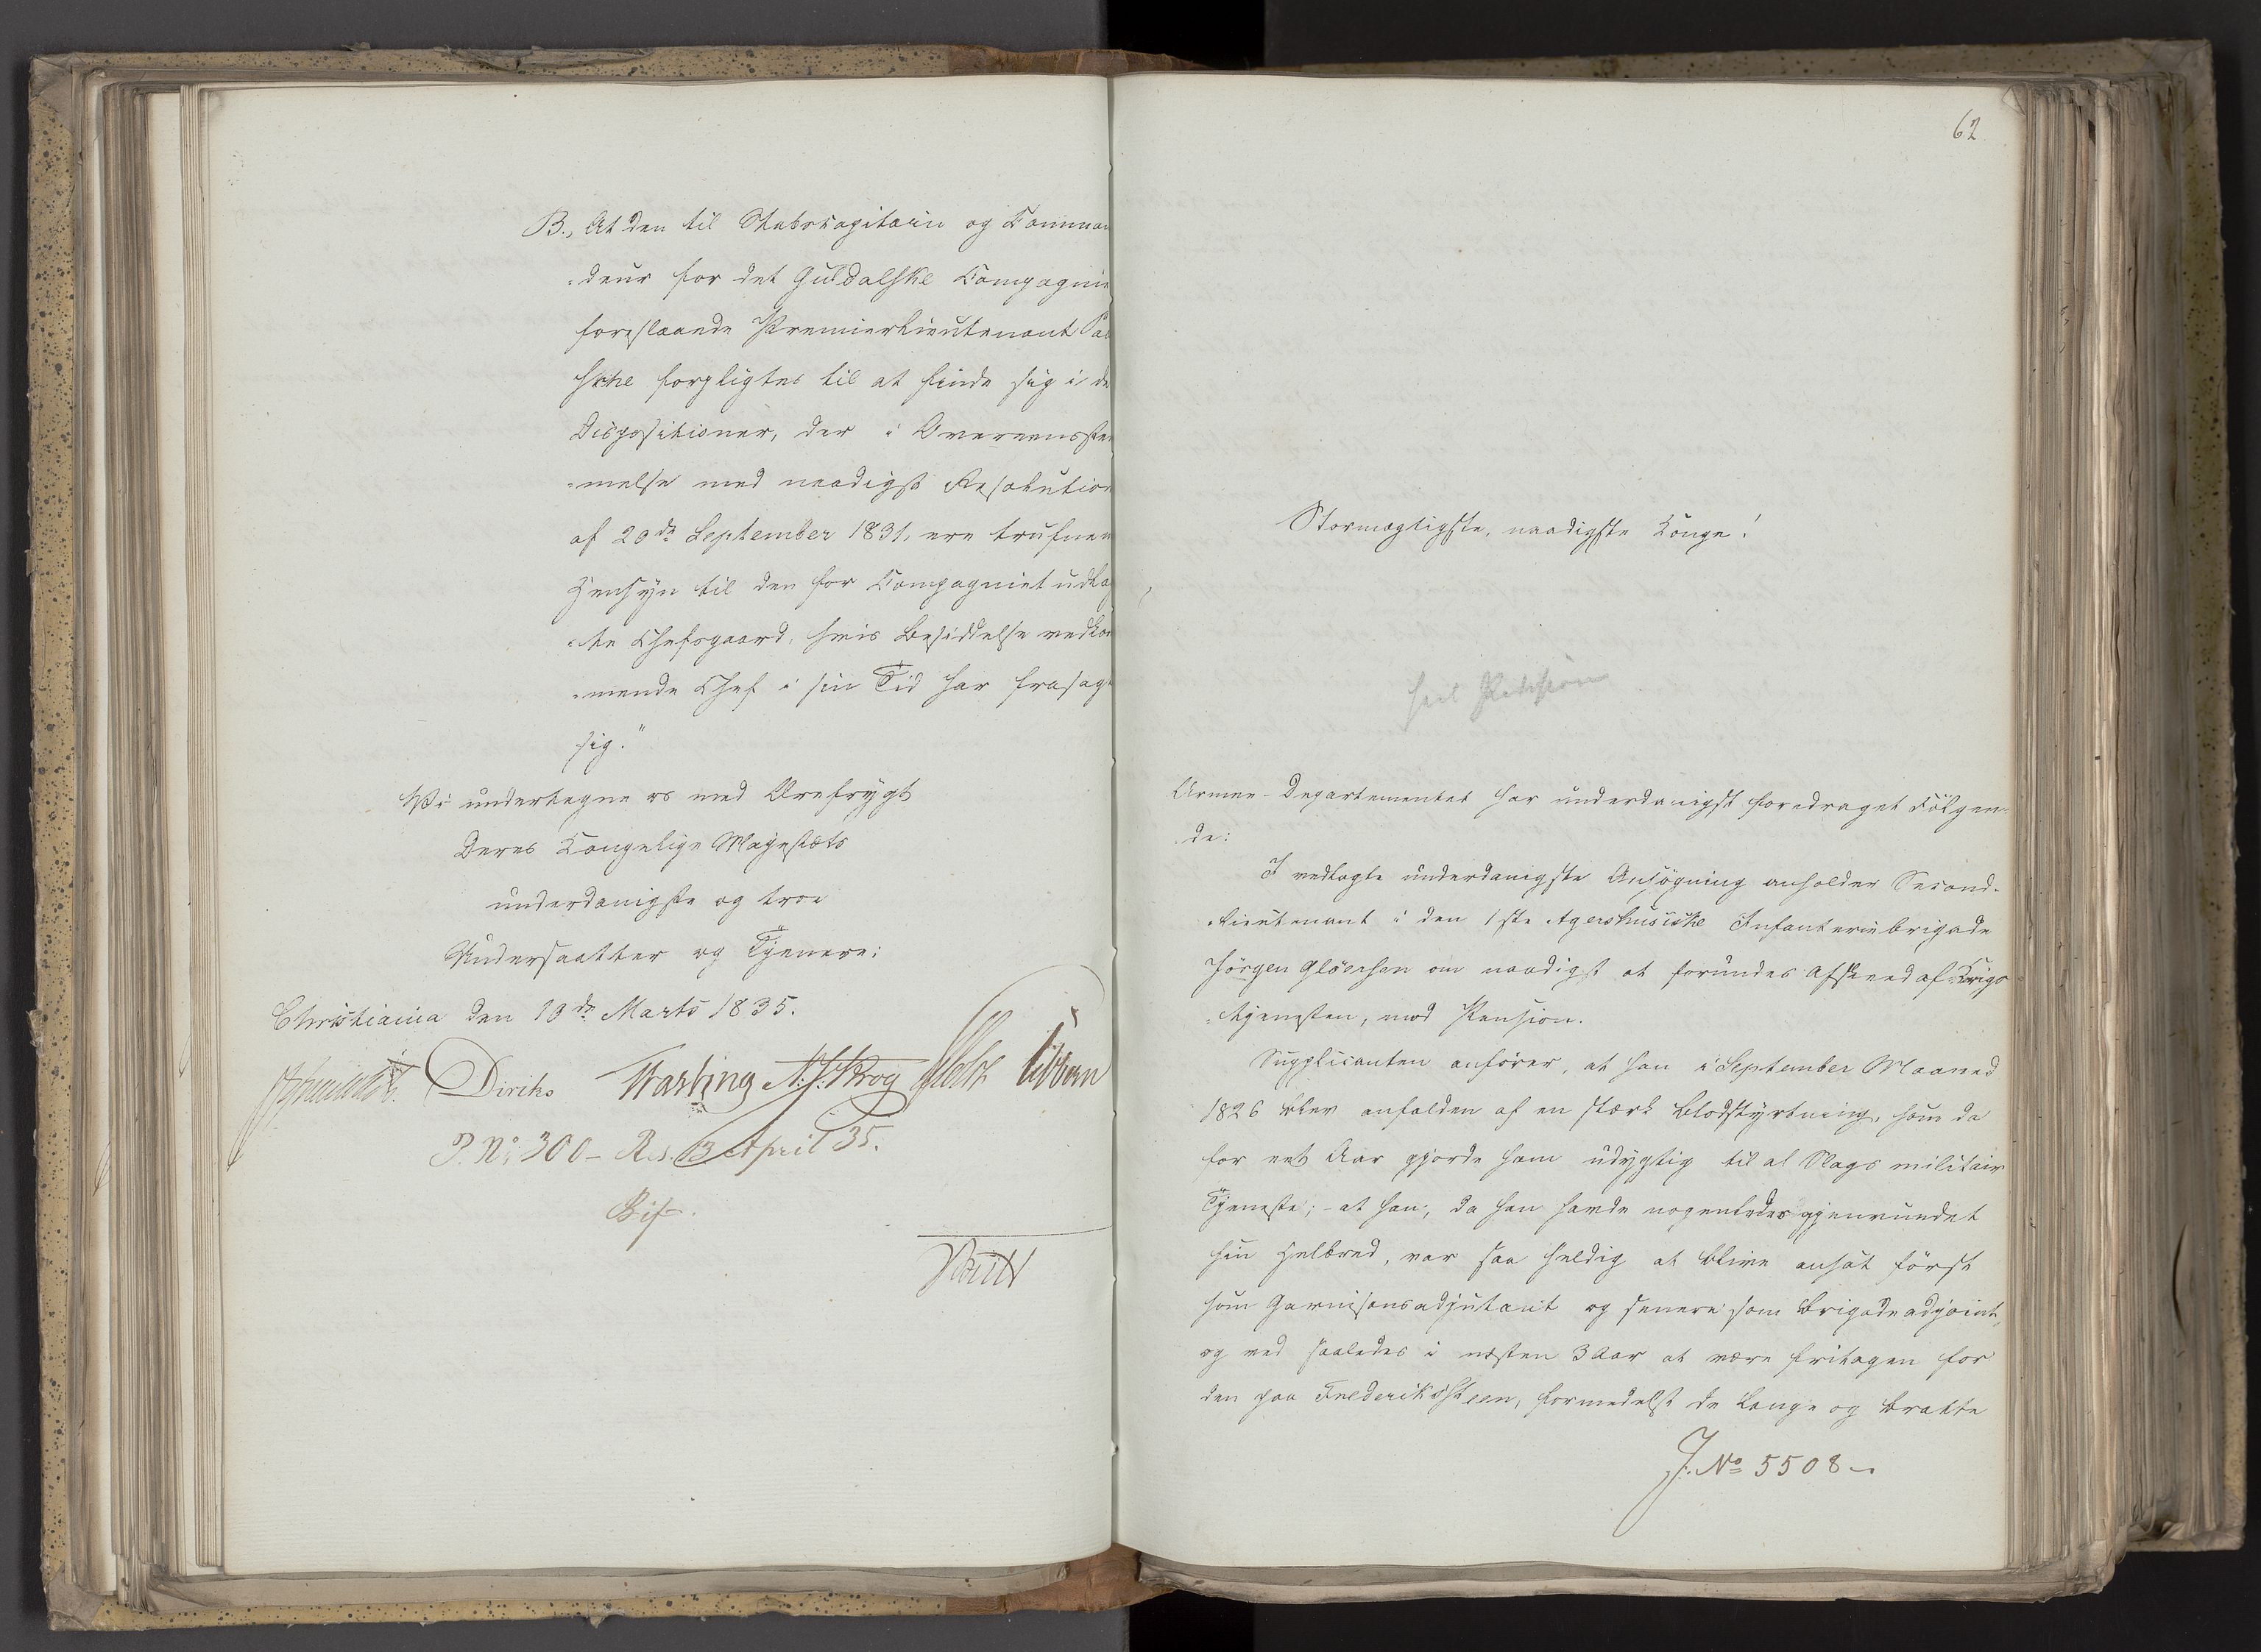 B., At den til Stabscapitain og Comman
"deur for det Guldalske Compagnie
foreslaaede Premierlieutenant
forpligtes til at finde sig i de
Dispositioner, der i Overeensstem
"melse med naadigst Resolution
af 20de September 1831, ere trufne
Hensyn til den for Compagniet udlag
"te Chefsgaard, hvis Besiddelse vedkom
"mende Chef i sin Tid har frasagt
sig."
Vi undertegne os med Ærefrygt
Deres Kongelige Majestæts
underdanigste og troe
Undersaatter og Tjenere:
Christiania den 19de Marts 1835.
Diriks Vasting N. J. Krog Holst
P. No 300 – Res. 13 April 35.
62
Stormægtigste, naadigste Konge!
Armee-Departementet har underdanigst foredraget Fölgen-
de:
I vedlagte underdanigste Ansögning anholder Second-
"lieutenant i den 1ste Agershusiske Infanteriebrigade
Jörgen Glöersen om naadigst at forundes Afskeed af Krigs
"tjenesten, med Pension.
Supplicanten anförer, at han i September Maaned
1826 blev anfalden af en stærk Blodstyrtning, som da
for eet Aar gjorde ham udygtig til al Slags militair
Tjeneste; – at han, da han havde nogenledes gjenvundet
sin Helbred, var saa heldig at blive ansat först
som Garnisonsadjutant og senere som Brigadeadjoint,
og ved saaledes i næsten 3 Aar at være fritagen for
den paa Frederiksteen, formedelst de lange og bratte
J. No 5508 –